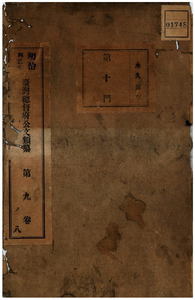 01745
永久保存
第十門
明治
臺灣總督府公文類纂
第九卷
八